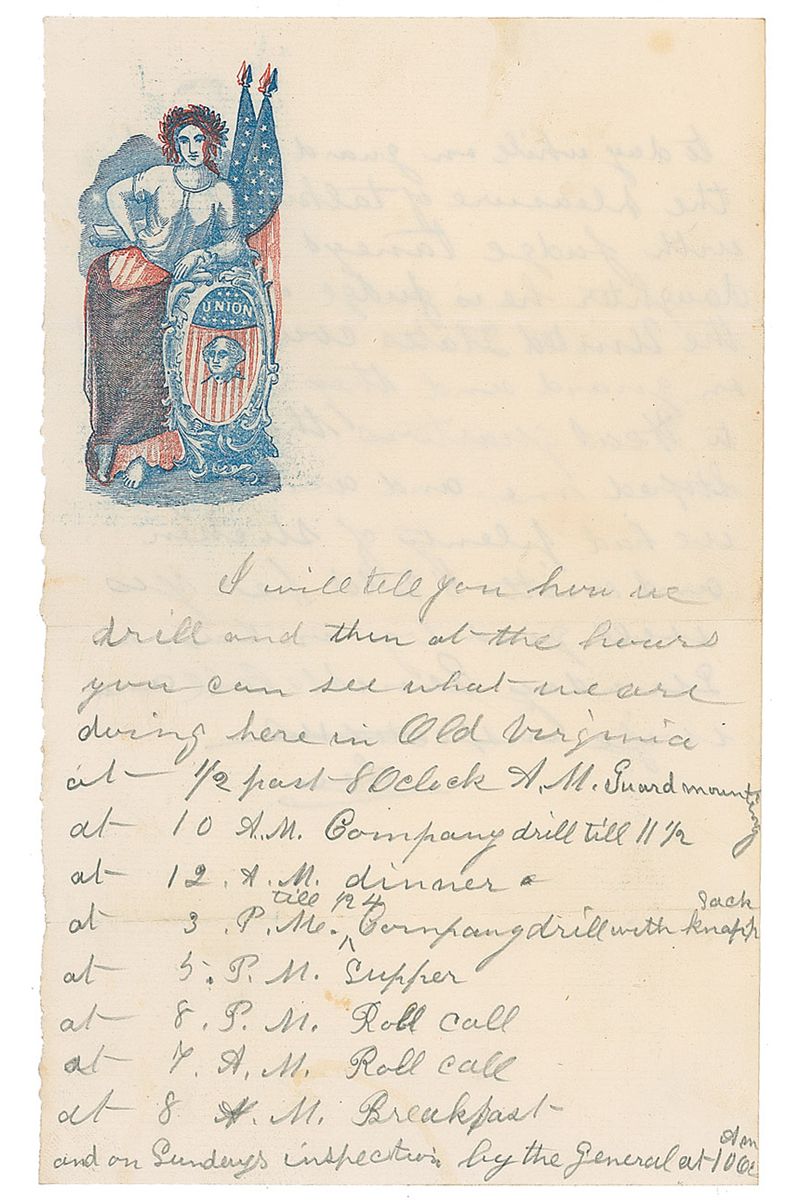 UNION
I will tell you how we
drill and then at the hours
you can see what we are
doing here in Old Virginia
at 1/2 past 8 Oclock A.M. Guard mounting
at 10 A.M. Company drill till 11 1/2
at 12. A.M. dinner
at 3. P.M. till 1/2 4 Company drill with Sack knapp
at 5. P.M. Supper
at 8. P.M. Roll call
at 7. A.M. Roll call
at 8 A.M. Breakfast
and on Sundays inspection by the General at 10 Oc Am